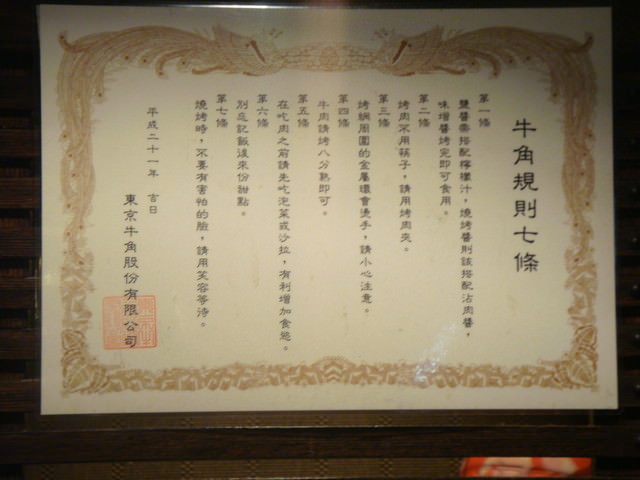 牛角規則七條
第一條
鹽醬需搭配檸檬汁，燒烤醬則該搭配沾肉醬，
味增醬烤完即可食用。
第二條
烤肉不用筷子，請用烤肉夾。
第三條
烤網周圍的金屬環會燙手，請小心注意。
第四條
牛肉請烤八分熟即可。
第五條
在吃肉之前請先吃泡菜或沙拉，有利增加食慾。
第六條
別忘記飯後來份甜點。
第七條
燒烤時，不要有害怕的臉，請用笑容等待。
平成二十一年 吉日
東京牛角股份有限公司